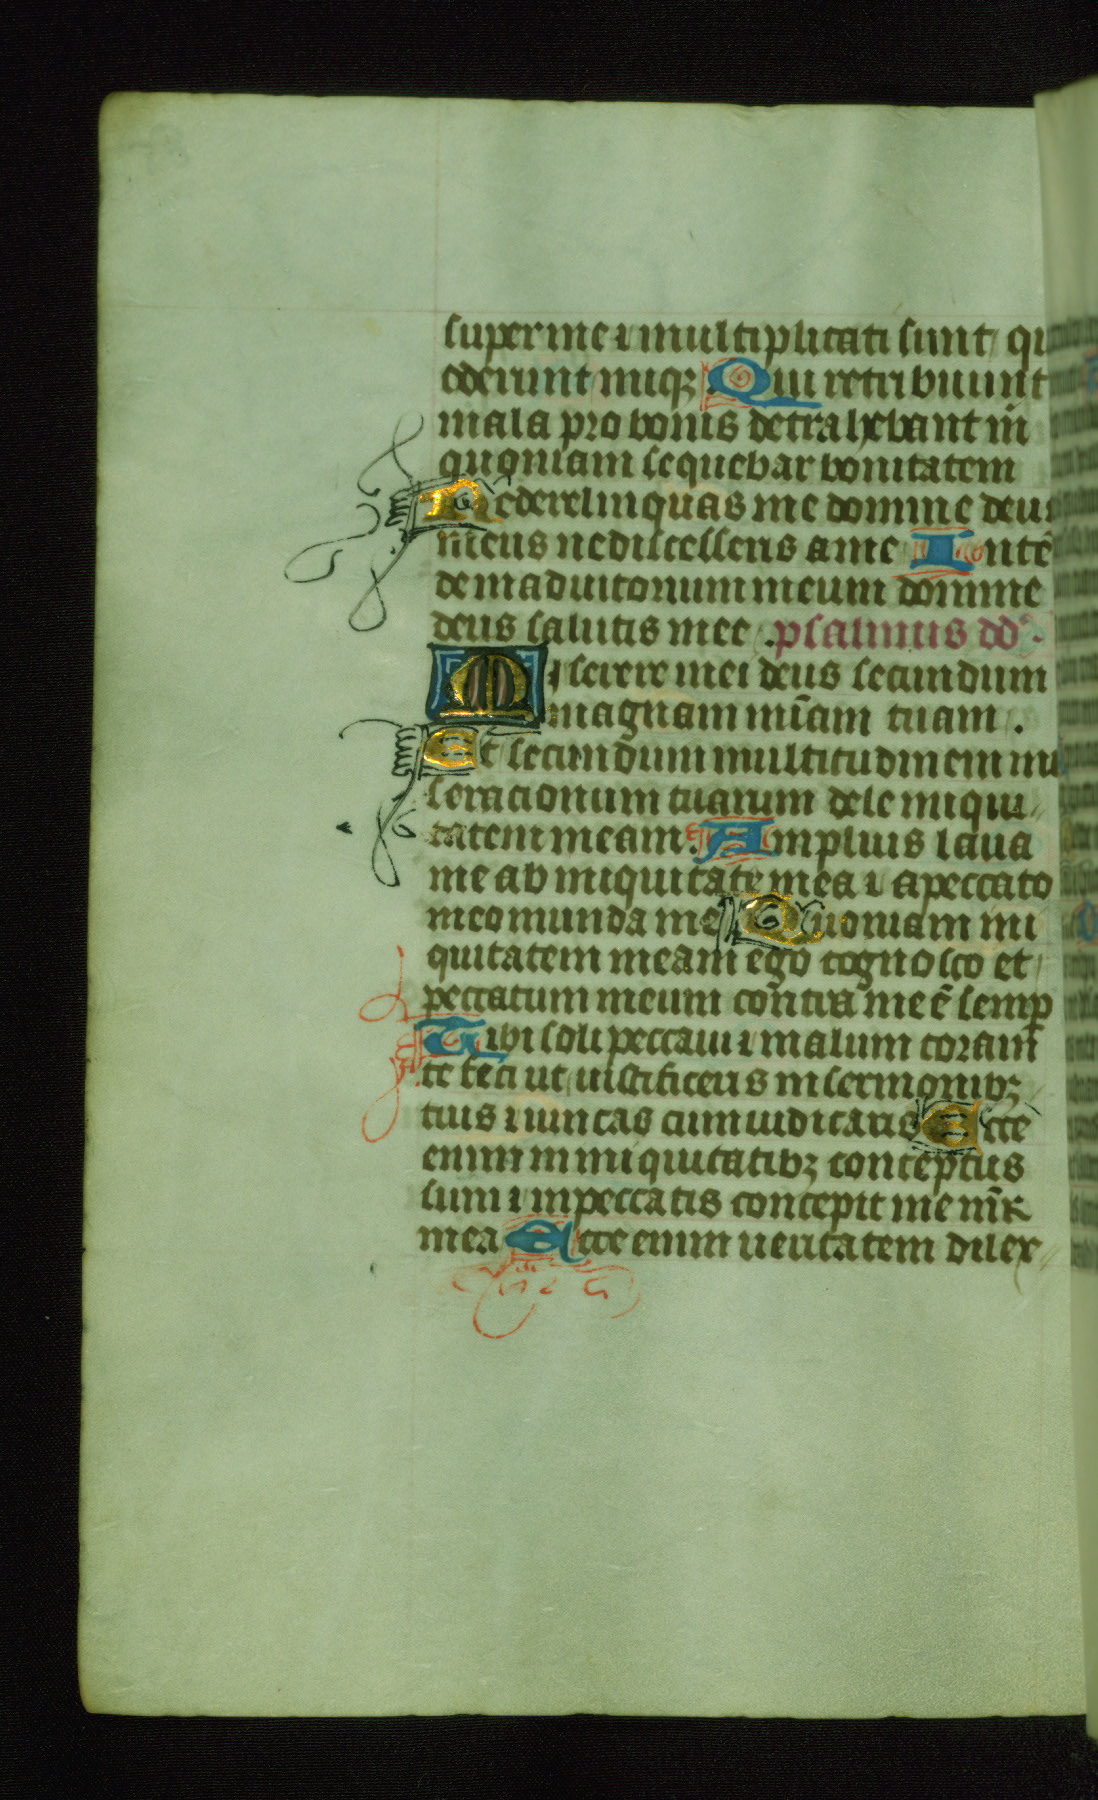 super me ⁊ multiplicati sunt qui
oderunt iniqꝫ Qui retribuunt
mala pro bonis detrahebant m̄
quoniam sequebar bonitatem
Nederelinquas me domine deus
meus nediscesseris ame Intē
dem aduitorium meum domine
deus salutis mee . psalmus dd̄ .
Miserere mei deus secundum
magnam mīam tuam .
Et secundum multitudinem mi
seracionum tuarum dele iniqui
tatem meam . Amplius laua
me ab iniquitate mea ⁊ apeccato
meo munda me Quoniam ini
quitatem meam ego cognosco et
peccatum meum contra me ē semp
Tibi soli peccaui ⁊ malum coram
te feci ut iustificeris in sermonibꝫ
tuis ⁊ uincas cum iudicaris Ecce
enim in iniquitatibꝫ conceptus
sum ⁊ inpeccatis concepit me mr̄
mea Ecce enim ueritatem dilex